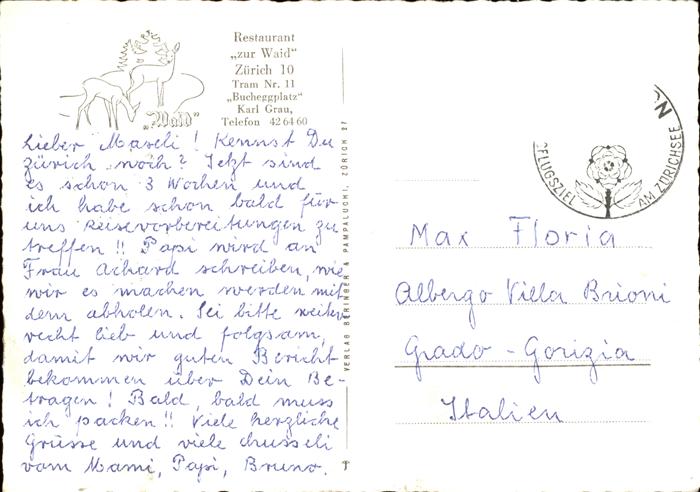 Restaurant
„zur Waid"
Zürich 10
Tram Nr. 11
„Bucheggplatz"
Karl Grau,
Telefon 42 64 60
„Waid"
Lieber Maseli! Kennst Du
zürich noch? Jetzt sind
es schon 3 Wochen und
ich habe schon bald für
uns Reisevorbereitungen zu
treffen!! Papi wird an
Frau Achard schreiben, wie
wir es machen werden mit
dem abholen. Sei bitte weiter
recht lieb und folgsam,
damit wir guten Bericht
bekommen über Dein Be-
tragen! Bald, bald muss
ich packen!! Viele herzliche
Grüsse und viele chusseli
vom Mami, Papi, Bruno.
VERLAG BERINGER & PAMPALUCHI, ZÜRICH 27
PFLUGSZIEL
AM ZÜRICHSEE
Max Floria
Albergo Villa Brioni
Grado - Gorizia
Italien